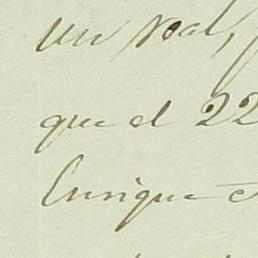 un real,
que el 22
Enrique